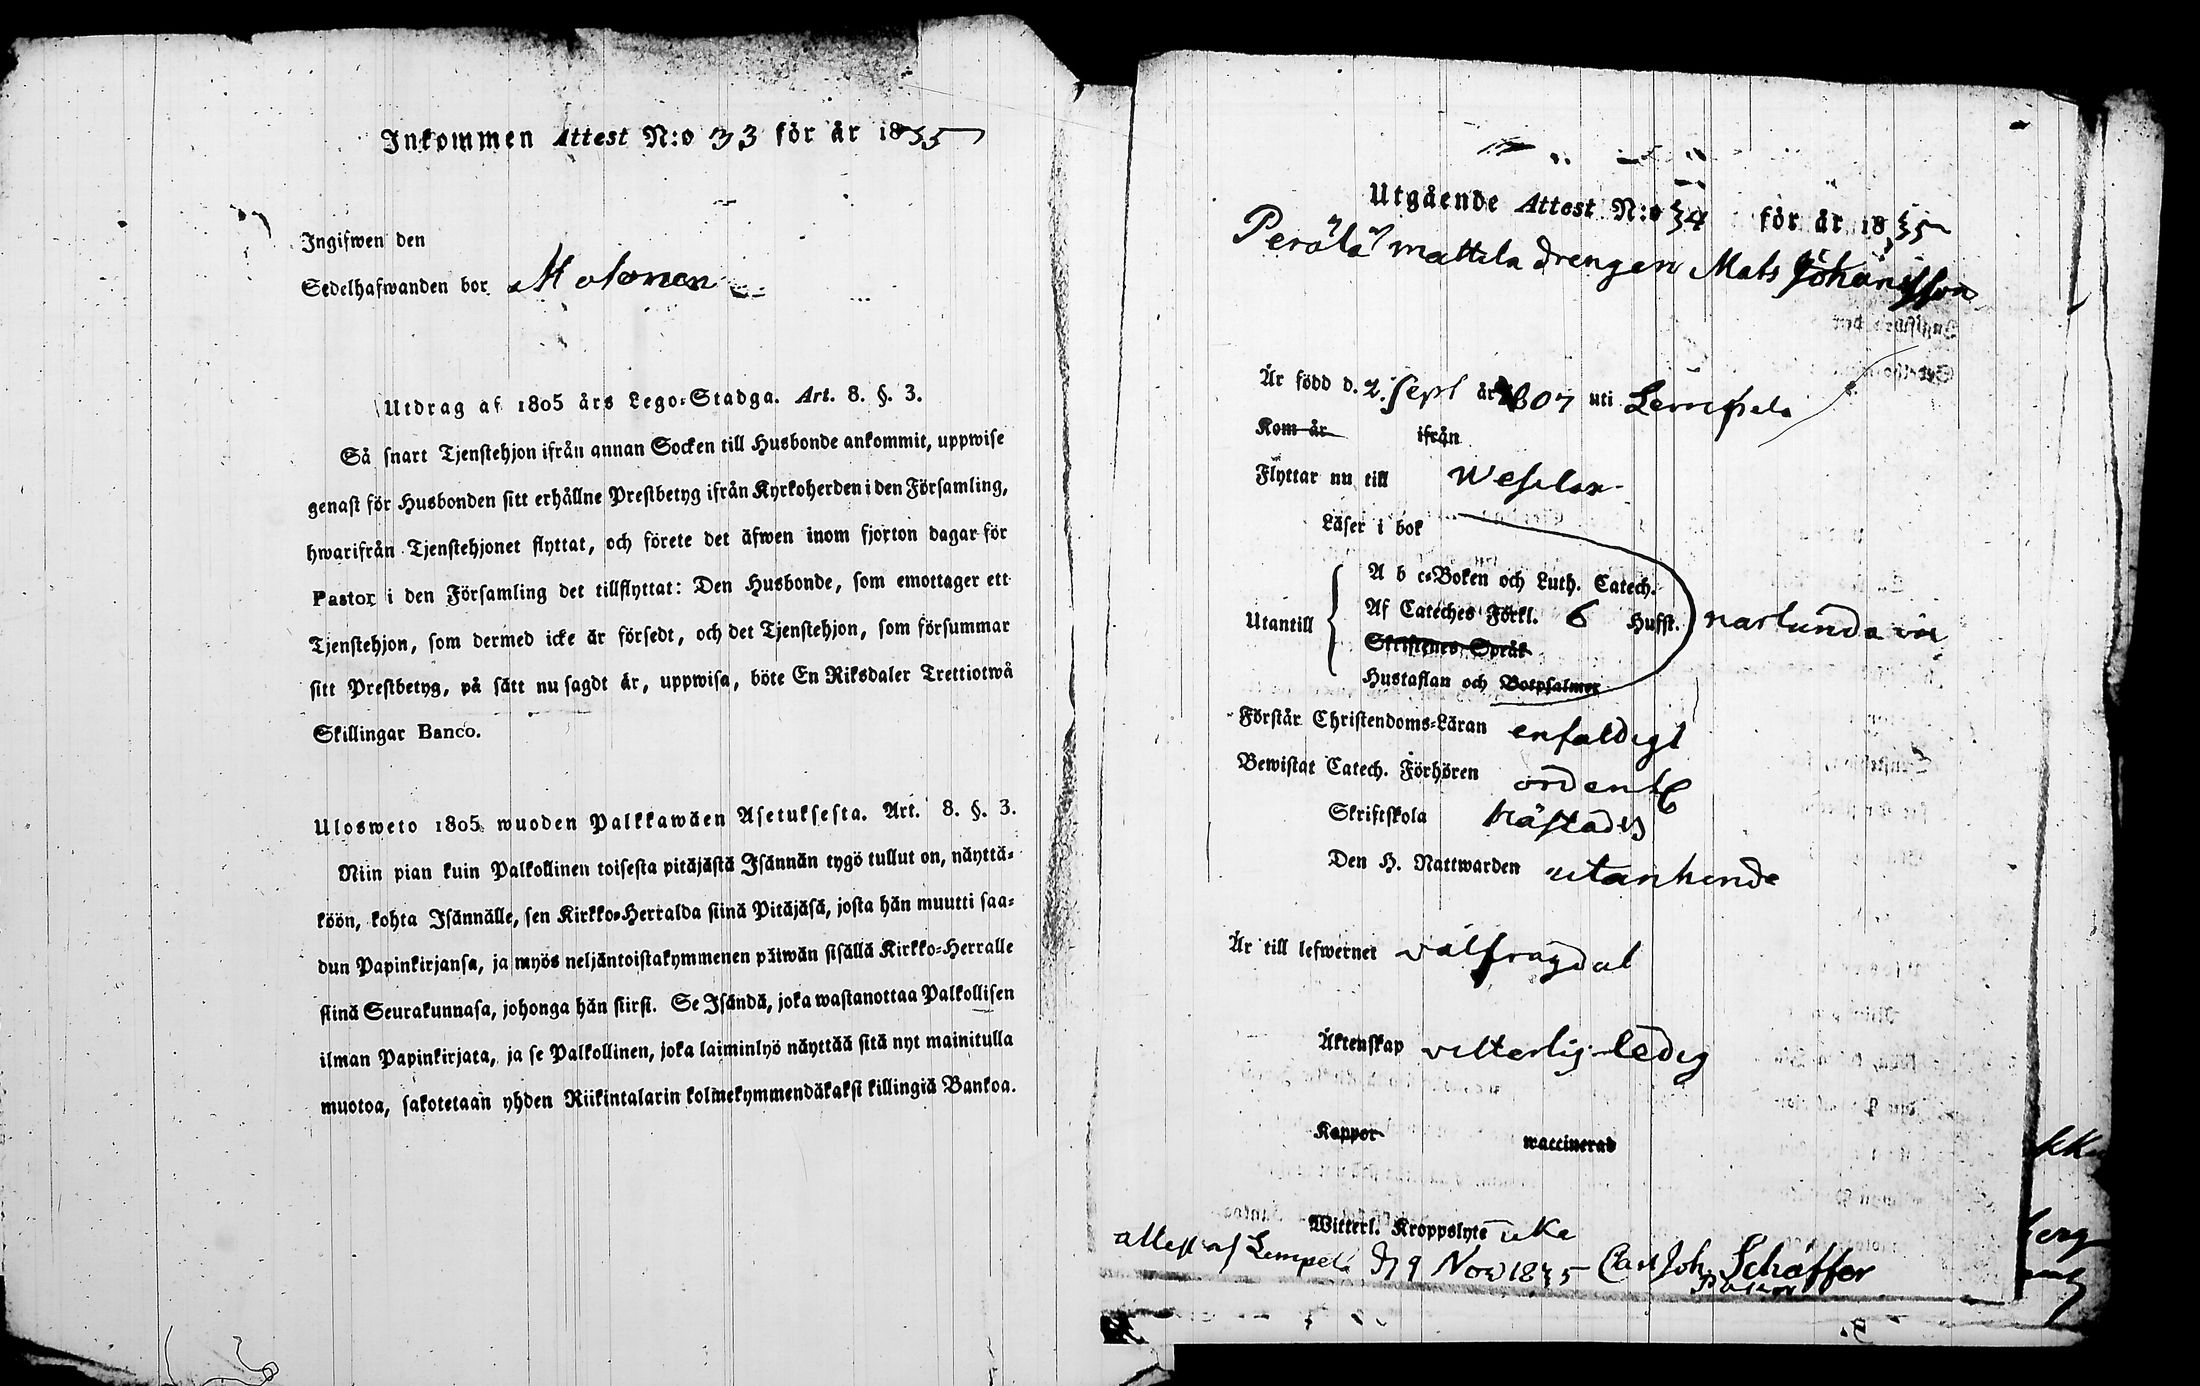 Inkommen Attest N:o 33 för år 1835
Ingifwen den
Sedelhafwanden bor Molonen
Utdrag af 1805 års Lego-Stadga. Art. 8. §. 3.
Så snart Tjenstehjon ifrån annan Socken till Husbonde ankommit, uppwise
genast för Husbonden sitt erhållne Prestbetyg ifrån Kyrkoherden i den Församling,
hwarifrån Tjenstehjonet flyttat, och förete det äfwen inom fjorton dagar för
Pastor i den Församling det tillflyttat: Den Husbonde, som emottager ett
Tjenstehjon, som dermed icke är försedt, och det Tjenstehjon, som försummar
sitt Prestbetyg, på sätt nu sagdt är, uppwisa, böte En Riksdaler Trettiotwå
Skillingar Banco.
Ulosweto 1805 wuoden Palkkawäen Asetuksesta. Art. 8. §. 3.
Niin pian kuin Palkollinen toisesta pitäjästä Isännän tygö tullut on, näyttä-
köön, kohta Isännälle, sen Kirkko-Herralda siinä Pitäjäsä, josta hän muutti saa-
dun Papinkirjansa, ja myös neljäntoistakymmenen päiwän sisällä Kirkko-Herralle
siinä Seurakunnasa, johonga hän siirsi. Se Isändä, joka wastanottaa Palkollisen
ilman Papinkirjata, ja se Palkollinen, joka laiminlyö näyttää sitä nyt mainitulla
muotoa, sakotetaan yhden Riikintalarin kolmekymmendäkaksi killingiä Bankoa.
Utgående Attest N:o 34 för år 1835
Perälä mattila drengen Mats Johansson
Är född d. 2. Sept år 1807 uti Lempela
Kom år ifrån
Flyttar nu till Weselax
Läser i bok
Utantill
A b c-Boken och Luth. Catech.
Af Cateches Förkl. 6 Hufst.
Skriftenes Språk
Hustaflan och Botpsalmer
Förstår Christendoms-Läran enfaldigt
Bewistat Catech. Förhören ordentl
Skriftskola
Den H. Nattwarden
Är till lefwernet välfragdad
Äktenskap vitterlig ledig
Koppor waccinerad
Witterl. Kroppslyte icke
attest af Lempela d 9 Nov 1835 Carl Joh. Schäffer
Pastor